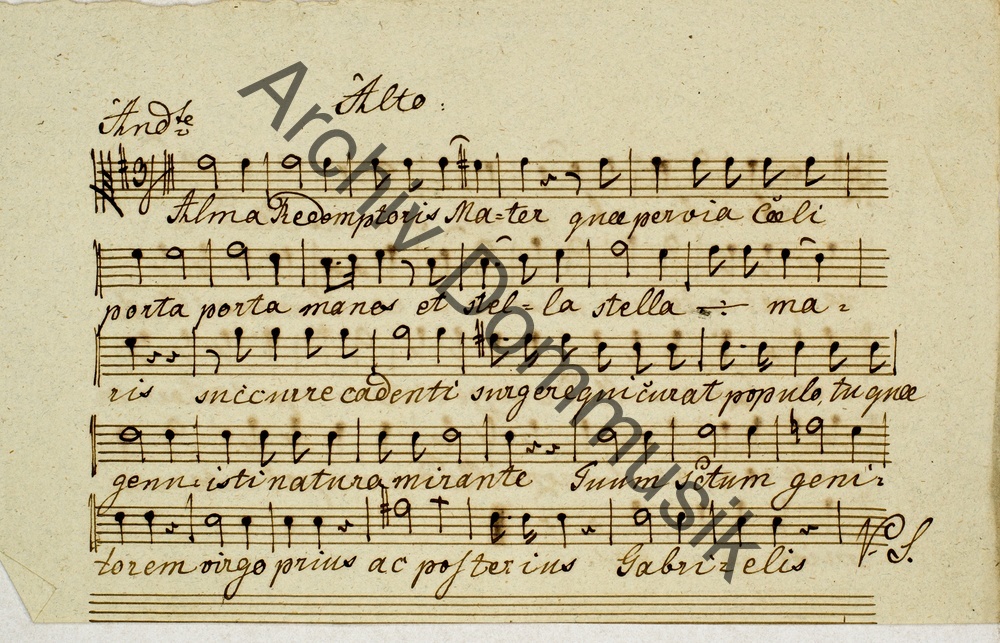 Alto:
And.te
Alma Redemptoris Ma=ter quæ pervia Cœli
porta porta manes et stel=la stella -:- ma=
ris succurre cadenti surgere qui curat populo, tu quæ
genuisti natura mirante Tuum Sctum geni=
torem virgo prius ac posterius Gabri=elis
V. S.
Archiv Dommusik